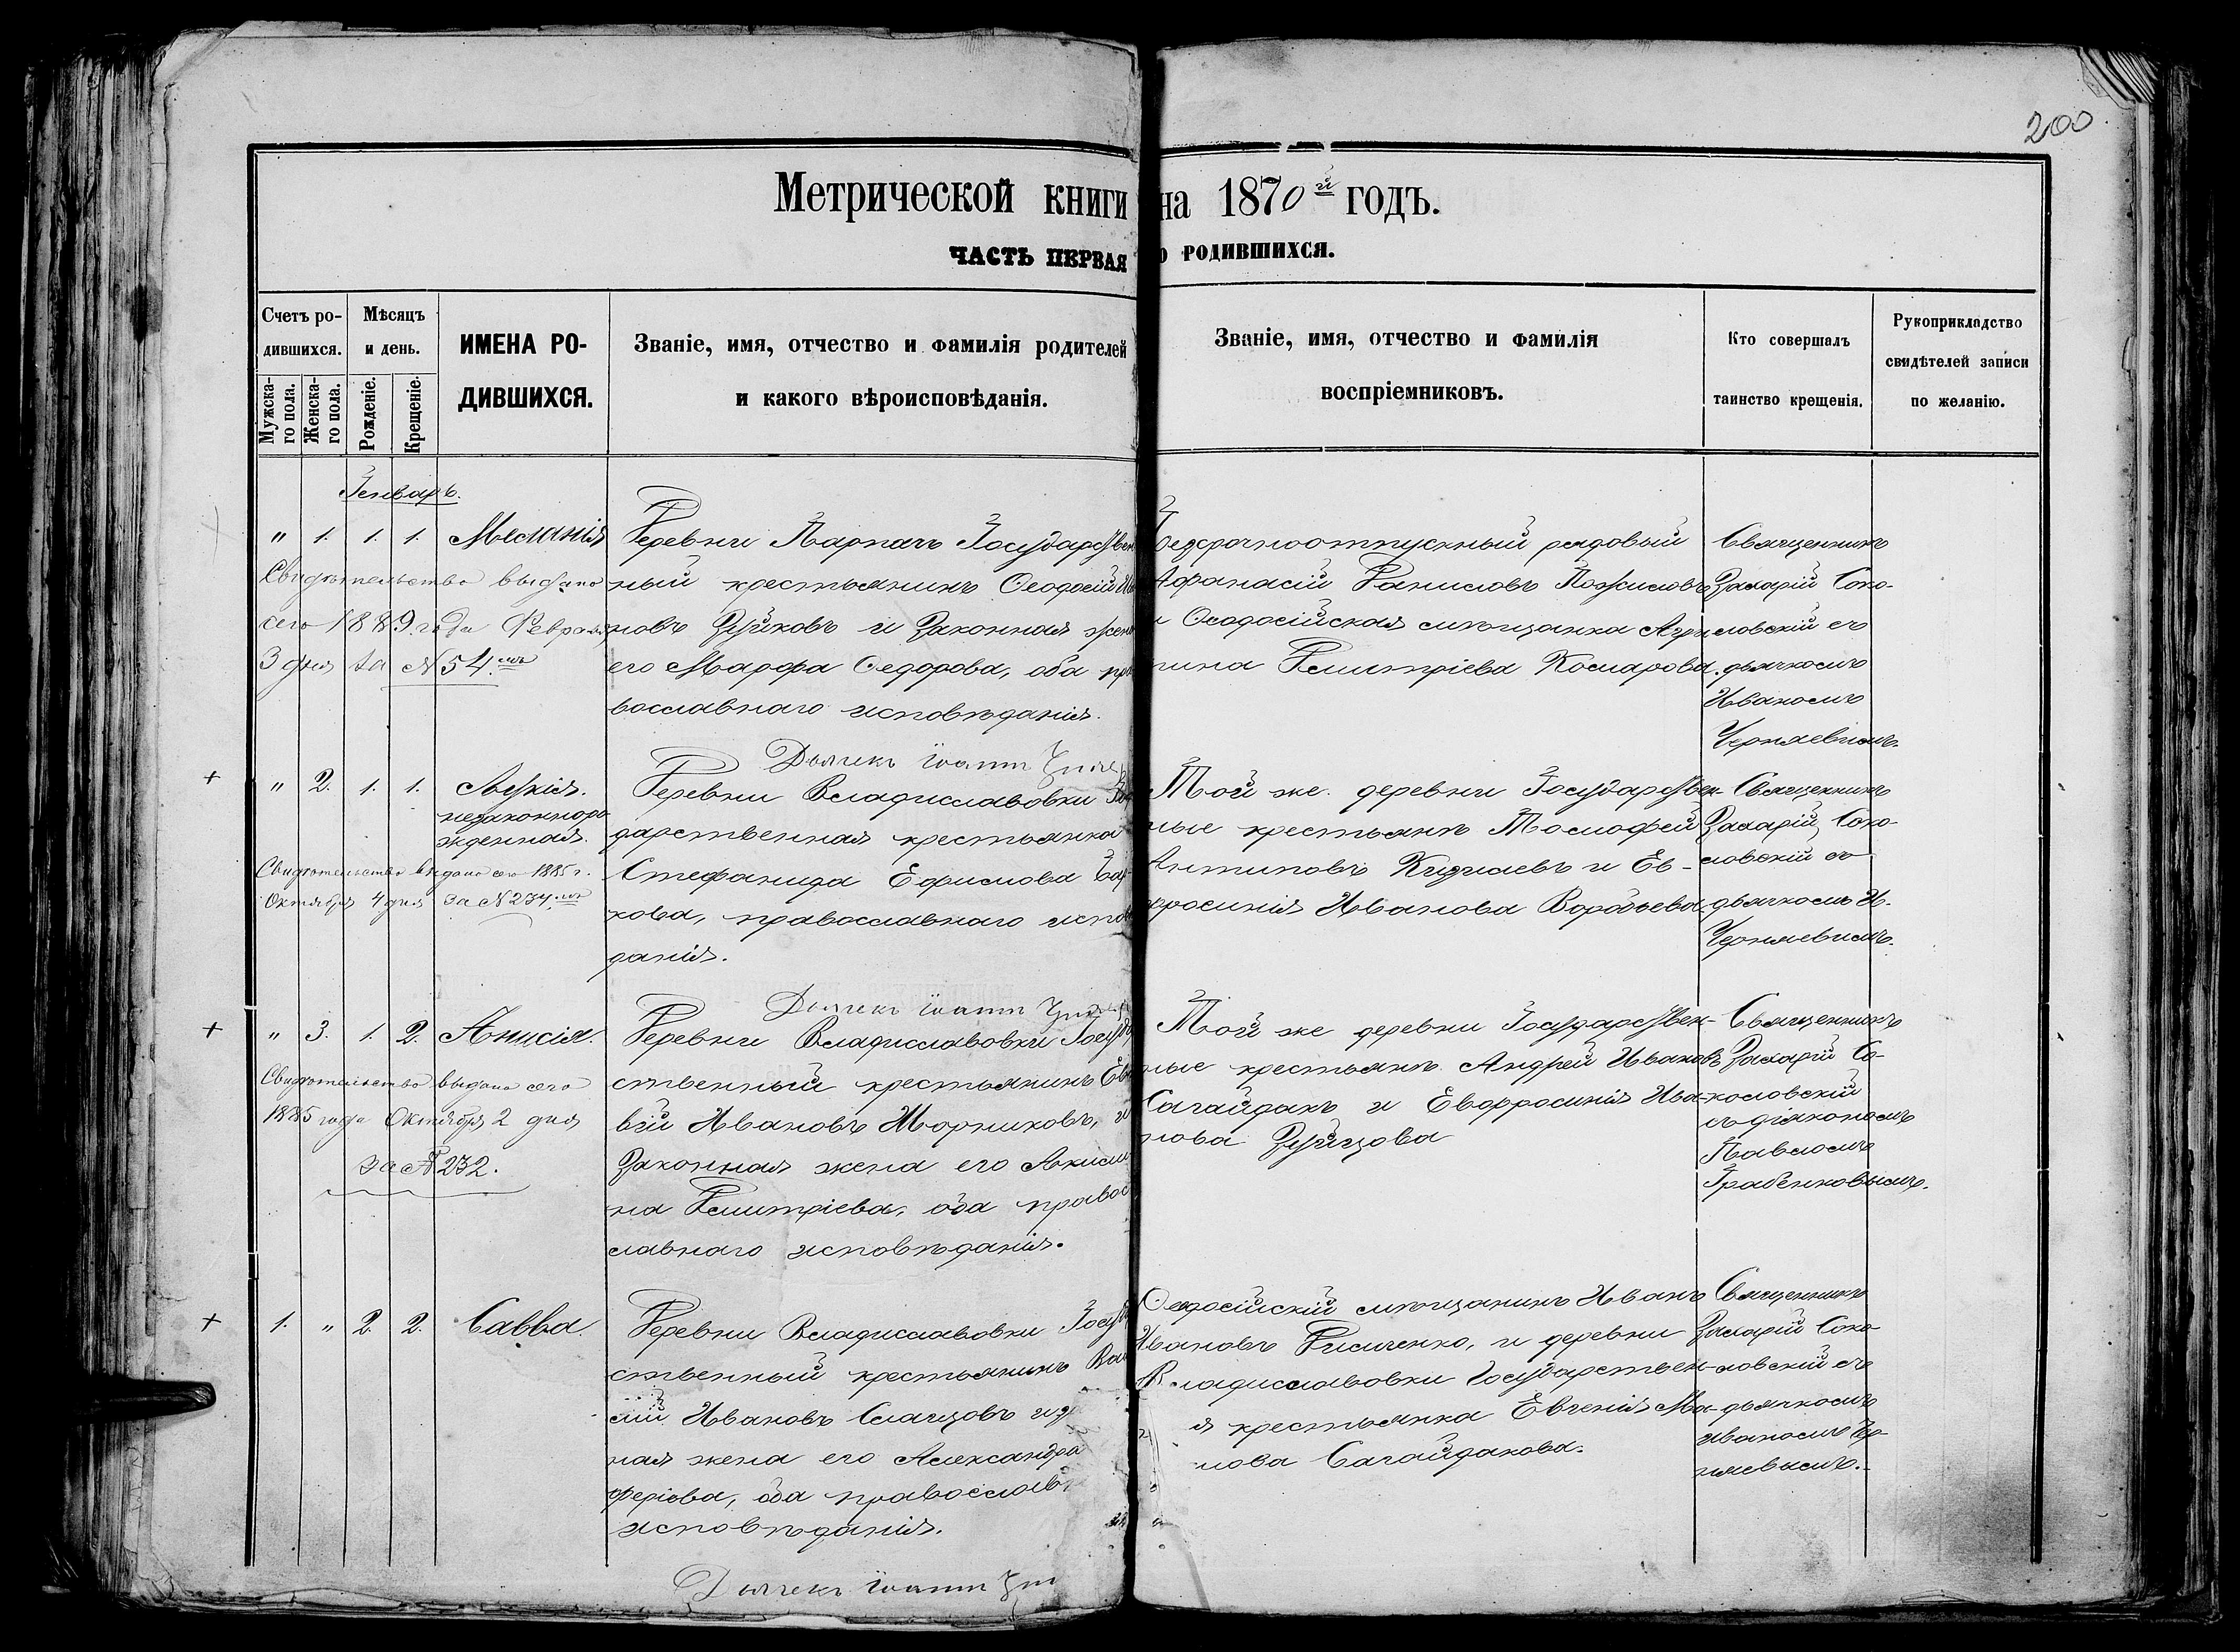 200
Метрической книги на 1870й годъ.
ЧАСТЬ ПЕРВАЯ О РОДИВШИХСЯ.
Счетъ ро-
дившихся.
Мужска-
го пола.
Женска-
го пола.
Мѣсяцъ
и день.
Рожденіе.
Крещеніе.
ИМЕНА РО-
ДИВШИХСЯ.
Званіе, имя, отчество и фамилія родителей
и какого вѣроисповѣданія.
Званіе, имя, отчество и фамилія
воспріемниковъ.
Кто совершалъ
таинство крещенія.
Рукоприкладство
свидѣтелей записи
по желанію.
Генварь.
" 1. 1. 1. Меланія
Свидѣтельство выдано
сего 1889 года Февраля
3 дня за № 54.мъ
Деревни Парпачь Государствен
ный крестьянинъ Ѳеодосій Ив
новъ Зуйковъ и Законная жена
его Марфа Ѳедорова, оба пра
вославнаго исповѣданія.
Дьячекъ Іоаннъ
Безсрочноотпускный рядовый
Афанасій Даниловъ
и Ѳеодосійская мѣщанка Агри
пина Дмитріева Комарова.
Священникъ
Захарій Соко-
ловскій съ
дьячкомъ
Иваномъ
Черняевымъ.
+ " 2. 1. 1. Лукія.
незаконноро
жденная.
Свидѣтельство выдано сего 1885 г.
Октября 4 дня за № 234.мъ
Деревни Владиславовки Госу
дарственная крестьянка
Стефанида Ефимова
кова, православнаго исповѣ
данія.
Дьячекъ Іоаннъ
Той же деревни Государствен-
ные крестьяне Тимофей
Антиповъ и Ев-
фросинія Иванова Воробьева
Священникъ
Захарій Соко-
ловскій съ
дьячкомъ И.
Черняевымъ.
+ " 3. 1. 2. Анисія.
Свидѣтельство выдано сего
1885 года Октября 2 дня
за № 232.
Деревни Владиславовки Госуда
ственный крестьянинъ
вій Ивановъ Жорниковъ, и
Законная жена его Акили
на Дмитріева, оба право
славнаго исповѣданія.
Той же деревни Государствен-
ные крестьяне Андрей Ивановъ
Сагайдакъ и Евфросинія Ива-
нова Зуйцова
Священникъ
Захарій Со-
коловскій
съ діакономъ
Павломъ
Грабенковымъ.
+ 1. " 2. 2. Савва.
Деревни Владиславовки Госуд
ственный крестьянинъ Васи
лій Ивановъ Слащовъ и за
ная жена его Александра
ферьева, оба православн
исповѣданія.
Дьячекъ Іоаннъ
Ѳеодосійскій мѣщанинъ Иванъ
Ивановъ и деревни
Владиславовки Государствен-
я крестьянка Евгенія Ма-
нова Сагайдакова.
Священникъ
Захарій Соко-
ловскій съ
дьячкомъ
Иваномъ Чер-
няевымъ.